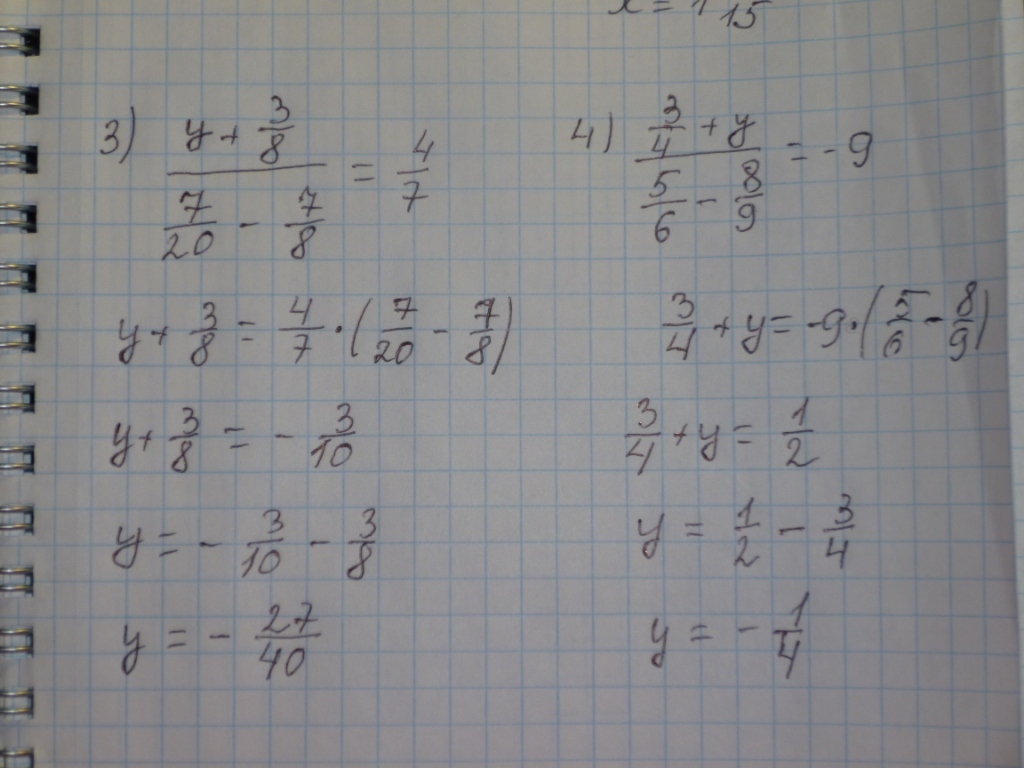 x = 1 15
3) (y + 3/8) / (7/20 - 7/8) = 4/7
y + 3/8 = 4/7 · (7/20 - 7/8)
y + 3/8 = - 3/10
y = - 3/10 - 3/8
y = - 27/40
4) (3/4 + y) / (5/6 - 8/9) = -9
3/4 + y = -9 · (5/6 - 8/9)
3/4 + y = 1/2
y = 1/2 - 3/4
y = - 1/4